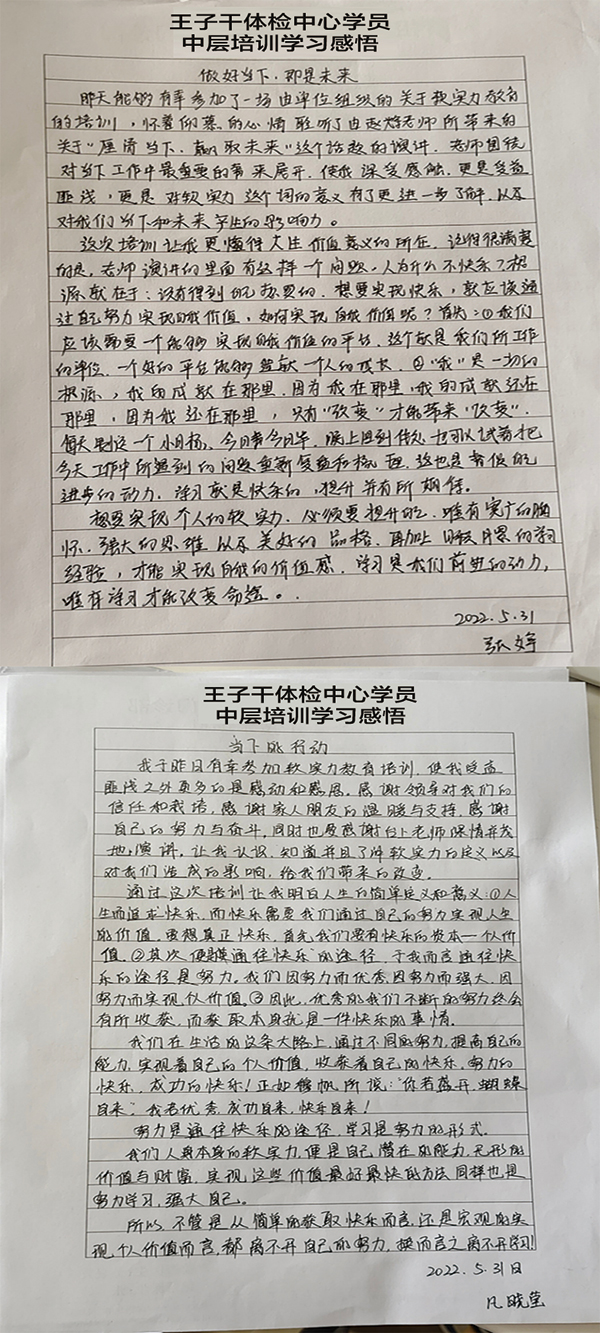 王子干体检中心学员
中层培训学习感悟
做好当下、那是未来
昨天能够有幸参加了一场由单位组织的关于软实力教育
的培训，怀着仰慕的心情聆听了由赵老师所带来的
关于"厘清当下、赢取未来"这个话题的演讲。老师围绕
对当下工作中最重要的事来展开，使我深受感触，更是受益
匪浅，更是对软实力这个词的意义有了更进一步了解，以及
对我们当下和未来产生的影响力。
这次培训让我更懂得人生价值意义的所在，记得很清楚
的是，老师演讲的里面有这样一个问题。人为什么不快乐？根
源就在于：没有得到自己想要的。想要实现快乐，就应该通
过自己努力实现自我价值，如何实现自我价值呢？首先：①我们
应该需要一个能够实现自我价值的平台，这个就是我们所工作
的单位，一个好的平台能够贡献一个人的成长。②"我"是一切的
根源，我的成就在那里，因为我在那里，我的成就还在
那里，因为我还在那里，只有"改变"才能带来"改变"。
每天制定一个小目标、今日事今日毕，晚上回到家也可以试着把
今天工作中所遇到的问题重新复盘和梳理，这也是督促自己
进步的动力，学习就是快乐的，提升并有所期待。
想要实现个人的软实力，必须要提升自己，唯有宽广的胸
怀、强大的思维以及美好的品格，再加上日积月累的学习
经验，才能实现自我的价值感，学习是我们前进的动力，
唯有学习才能改变命运。
2022.5.31
张婷
王子干体检中心学员
中层培训学习感悟
当下的行动
我于昨日有幸参加软实力教育培训，使我受益
匪浅之外更多的是感动和感恩。感谢领导对我们的
信任和栽培，感谢家人朋友的温暖与支持，感谢
自己的努力与奋斗，同时也要感谢台上老师深情并茂
地演讲。让我认识，知道并且了解软实力的定义以及
对我们造成的影响，给我们带来的改变。
通过这次培训让我明白人生的简单定义和意义：①人
生而追求快乐，而快乐需要我们通过自己的努力实现人生
的价值。要想真正快乐，首先我们要有快乐的资本—个人价
值。②其次，便是通往快乐的途径，于我而言通往快
乐的途径是努力。我们因努力而优秀，因努力而强大，因
努力而实现个人价值。③因此，优秀的我们不断的努力终会
有所收获，而获取本身就是一件快乐的事情。
我们在生活的这条大路上，通过不同的努力，提高自己的
能力，实现着自己的个人价值，收获着自己的快乐，努力的
快乐，成功的快乐！正如穆帆所说："你若盛开，蝴蝶
自来；我若优秀，成功自来，快乐自来！
努力是通往快乐的途径，学习是努力的形式。
我们人类本身的软实力，便是自己潜在的能力，无形的
价值与财富，实现这些价值最好最快的方法同样也是
努力学习，强大自己。
所以，不管是从简单的获取快乐而言，还是宏观的实
现个人价值而言，都离不开自己的努力，换而言之离不开学习！
2022.5.31日
凡晓莹